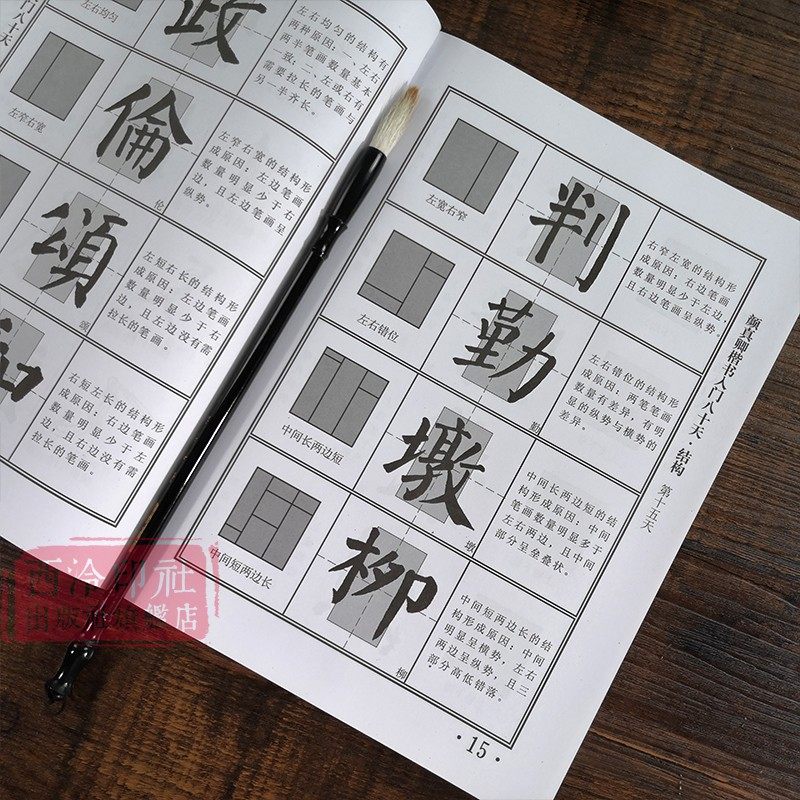 八十天
左右均匀
政
左右均匀的结构有
两种原因：一、左右
两半笔画数量基本
一致；二、左或右有
需要拉长的笔画与
另一半齐长。
左窄右宽
倫
伦
左窄右宽的结构形
成原因：左边笔画
数量明显少于右
边，且左边笔画呈
纵势。
頌
颂
左短右长的结构形
成原因：左边笔画
数量明显少于右
边，且左边没有需
拉长的笔画。
和
右短左长的结构形
成原因：右边笔画
数量明显少于左
边，且右边没有需
拉长的笔画。
左宽右窄
判
右窄左宽的结构形
成原因：右边笔画
数量明显少于左边，
且右边笔画呈纵势。
左右错位
勤
勤
左右错位的结构形
成原因：两笔笔画
数量有差异，有明
显的纵势与横势的
差异。
中间长两边短
墩
墩
中间长两边短的结
构形成原因：中间
笔画数量明显多于
左右两边，且中间
部分呈垒叠状。
中间短两边长
柳
柳
中间短两边长的结
构形成原因：中间
明显呈横势，左右
两边呈纵势，且三
部分高低错落。
颜真卿楷书入门八十天·结构 第十五天
·15·
西泠印社
出版社旗艦店